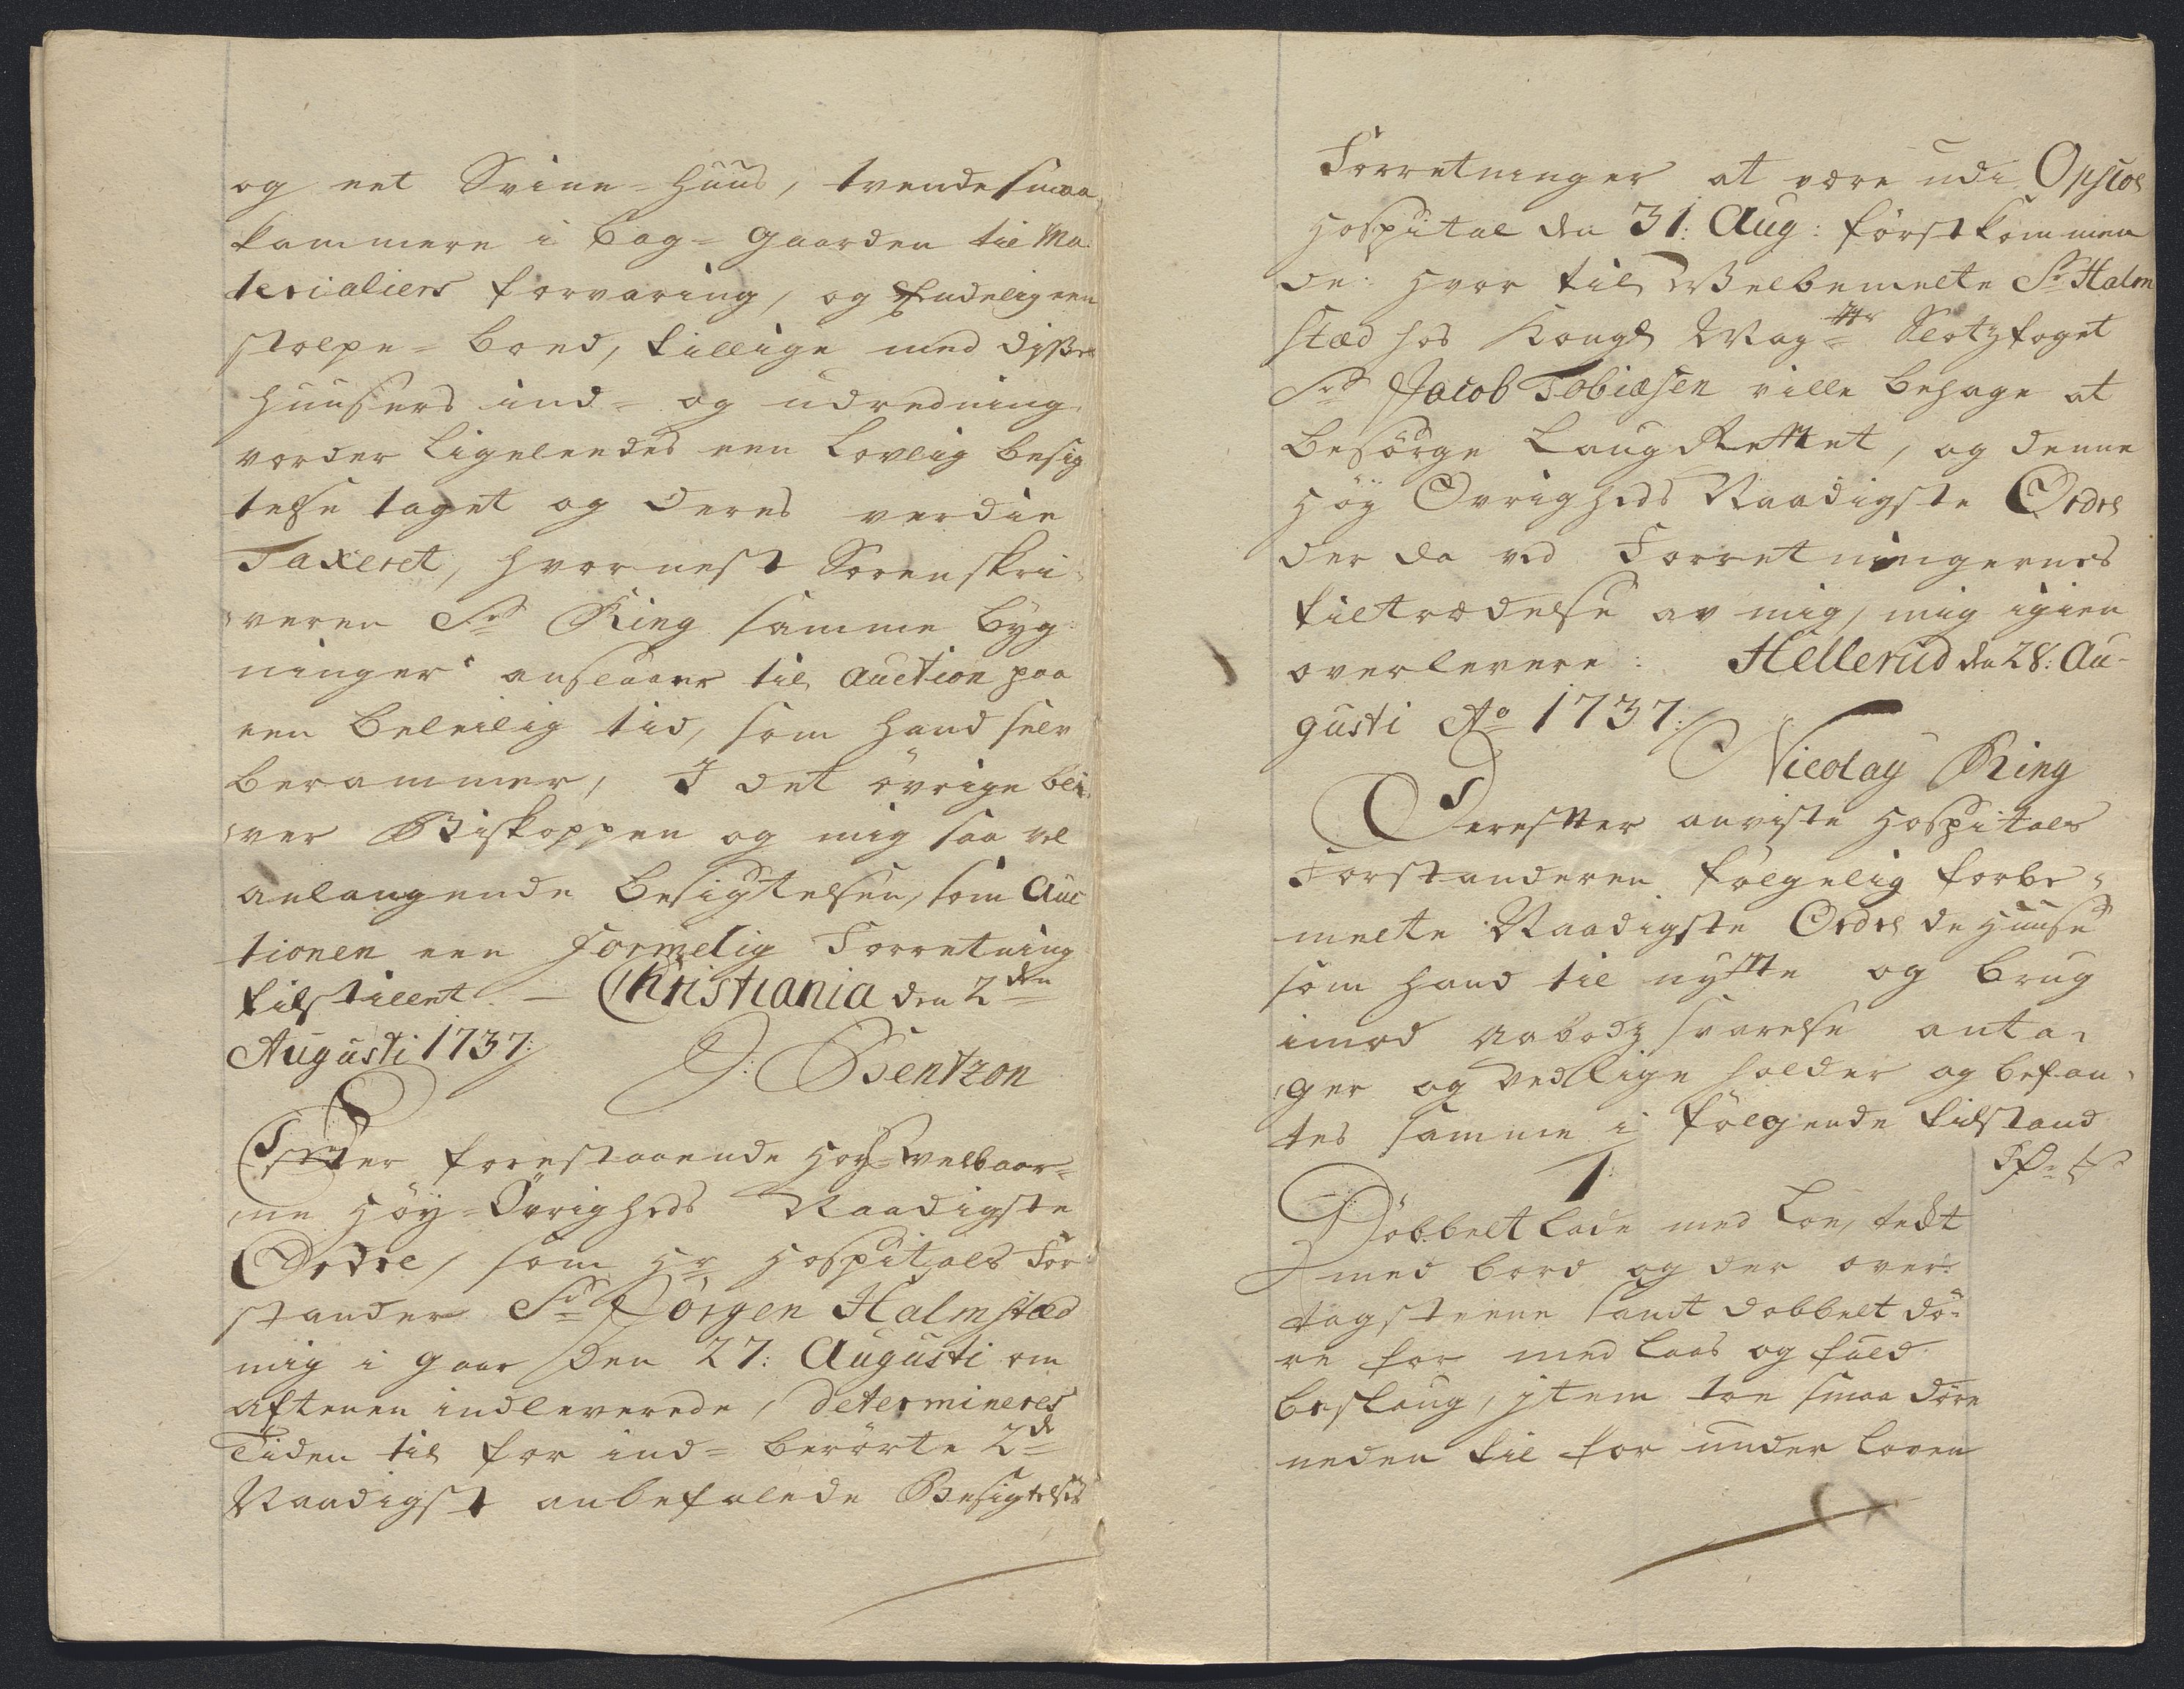 og eet Sviine-Huus, tvende smaa
kammere i Bag-Gaarden til Ma-
terialiers forvaring, og Endelig een
stolpe-boed, tillige med disse
Huusers ind- og udredning
vorder ligeleedes een Lovlig besig
telse taget og deres verdie
Taxeret, hvornest Sorenskri-
veren Sr Ring samme Byg
ninger anslaaer til Auction paa
een beleilig tid, som hand selv
berammer, I det övrige bli-
ver Biskoppen og mig saa vel
anlangende besigtelsen, som Auc
tionen een formelig Forretning
tilstillet. - Christiania den 2den
Augusti 1737:
J: Bentzon
Efter forestaaende Höy-velbaar-
ne Höy-Övrigheds Naadigste
Ordre, som Hr Hospitals For-
stander Sr Jörgen Halmstæd
mig i gaar den 27: Augusti om
aftenen indleverede, determineres
Tiden til for ind-berörte 2de
Naadigst anbefalede Besigtelses
Forretninger at være udi Opsloe
Hospital den 31: Aug: förstkommen
de: hvor til Welbemelte Sr Halm
stæd hos Kongl Mayttr Slotzfoget
Sr Jacob Tobiæsen ville behage at
besörge LaugRettet, og denne
Höy Övrigheds Naadigste Ordre
der da ved Forretningernes
tiltrædelse av mig, mig igien
overlevere: Hellerud den 28: Au-
gusti Ao 1737:
Nicolay Ring
Derefter anviste Hospitals
Forstanderen fölgelig forbe-
melte Naadigste Ordre de Huuse
som hand til nytte og brug
imod aabodz svarelse anta-
ger og vedlige holder og befan-
tes samme i fölgende tilstand
1:
Dobbelt lade med Loe, tegt
med bord og der over
tagsteene samt dobbelt dö-
re for med laas og fuld
beslaug, jtem toe smaa döre
neden til for under loven